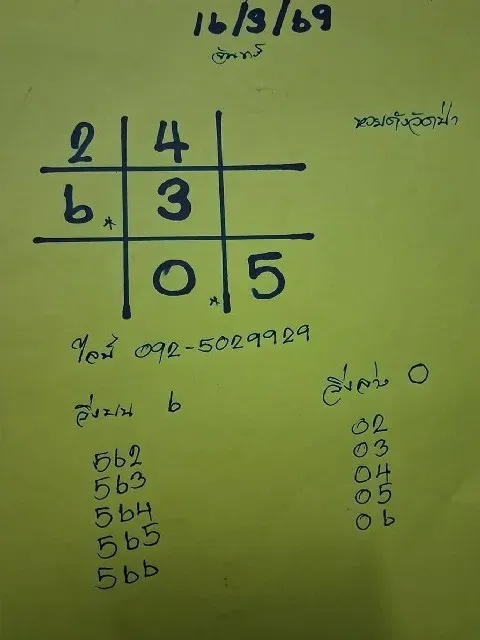 16/3/69
จันทร์
หวยดังวัดป่า
2 4
6 * 3
0 * 5
ไลน์ 092-5029929
วิ่งบน 6
562
563
564
565
566
วิ่งล่าง 0
02
03
04
05
06